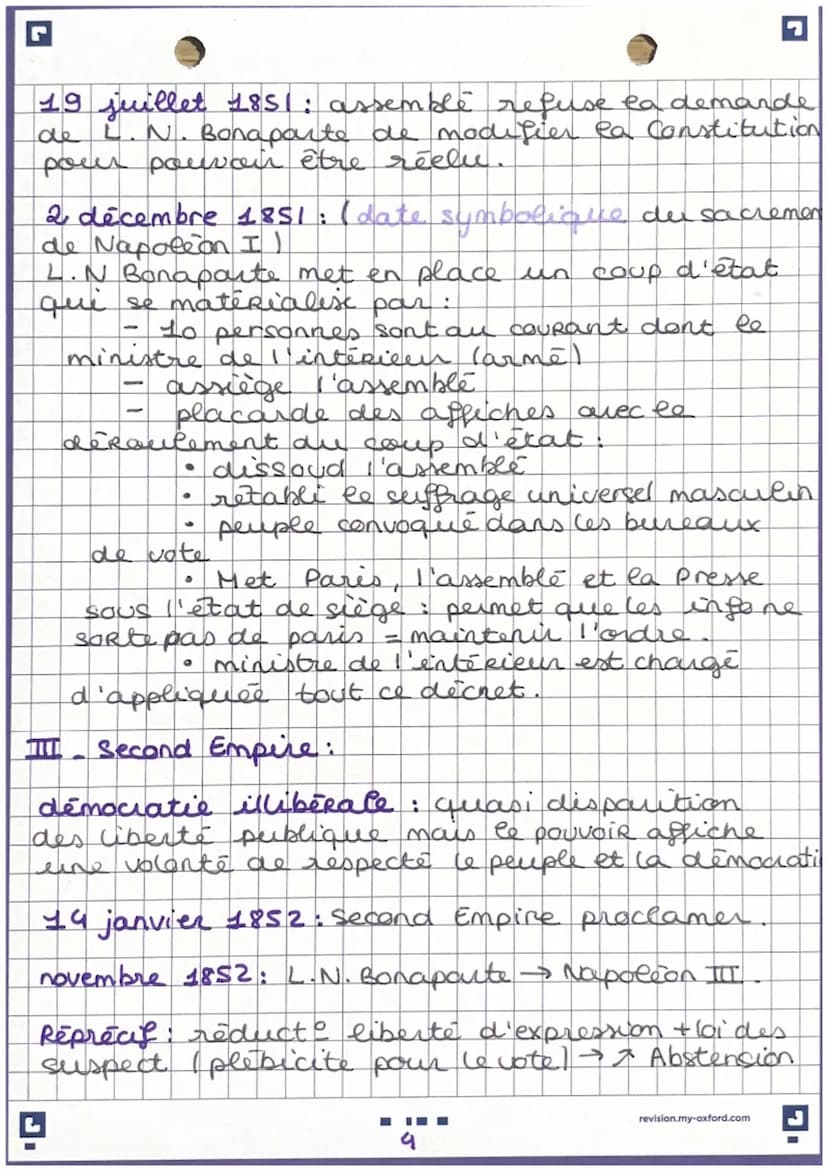 19 juillet 1851 : assemblé refuse la demande
de L. N. Bonaparte de modifier la Constitution
pour pouvoir être réelu.
2 décembre 1851 : (date symbolique du sacremen
de Napoléon I)
L.N Bonaparte met en place un coup d'état
qui se matérialise par :
- 10 personnes sont au courant dont le
ministre de l'intérieur (armé)
- assiège l'assemblé
- placarde des affiches avec le
déroulement du coup d'état :
• dissoud l'assemblé
• rétabli le suffrage universel masculin
• peuple convoqué dans les bureaux
de vote
• Met Paris, l'assemblé et la Presse
sous l'état de siège : permet que les info ne
sorte pas de paris = maintenir l'ordre.
• ministre de l'intérieur est chargé
d'appliquée tout ce décret.
III - Second Empire :
démocratie illibérale : quasi disparition
des liberté publique mais le pouvoir affiche
une volonté de respecté le peuple et la démocrati
14 janvier 1852 : Second Empire proclamer.
novembre 1852 : L.N. Bonaparte → Napoléon III.
Répréçif : réduct° liberté d'expression + loi des
suspect (plébicite pour le vote) → ↗ Abstension
revision.my-oxford.com
9